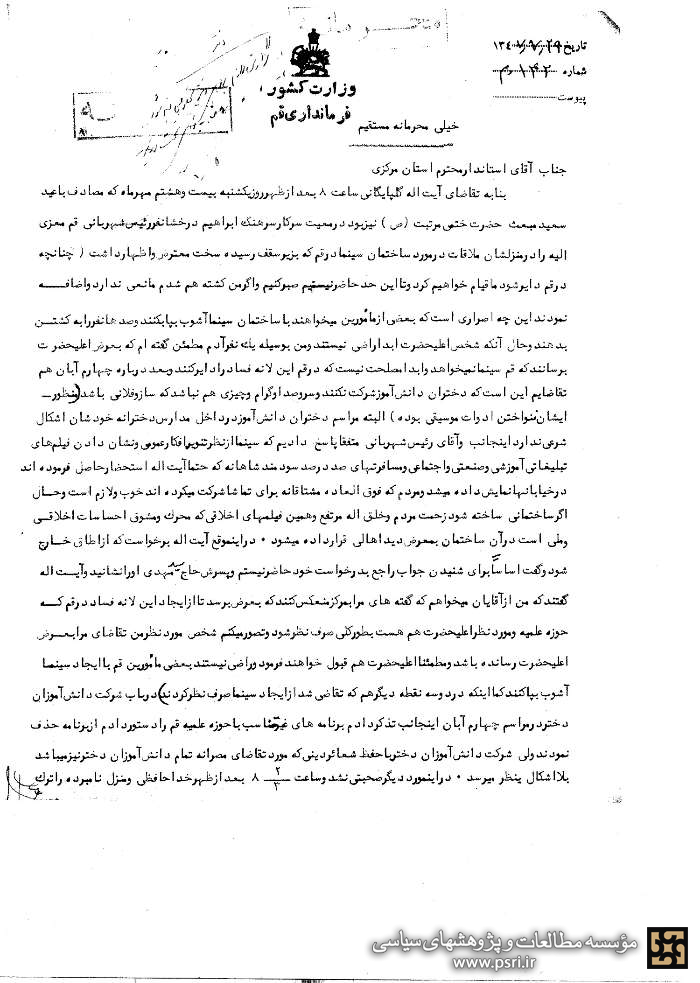 تاریخ
شماره
پیوست
وزارت کشور
فرمانداری قم
خیلی محرمانه مستقیم
جناب آقای استاندار محترم استان مرکزی
بنا به تقاضای آیت اله گلپایگانی ساعت ۸ بعد از ظهر روز یکشنبه بیست و هشتم مهرماه که مصادف با عید
سعید مبعث حضرت ختمی مرتبت (ص) نیز بود در معیت سرکار سرهنگ ابراهیم درخشانفر رئیس شهربانی قم معزی
الیه را در منزلشان ملاقات در مورد ساختمان سینما در قم که بزیر سقف رسیده سخت معترض و اظهار داشت (چنانچه
در قم دایر شود ما قیام خواهیم کرد و تا این حد حاضر نیستیم صبر کنیم و اگر من کشته هم شدم مانعی ندارد و اضافه
نمودند این چه اصراری است که بعضی از مأمورین میخواهند با ساختمان سینما آشوب بپا بکنند و صدها نفر را به کشتن
بدهند و حال آنکه شخص اعلیحضرت ابدا راضی نیستند و من بوسیله یک نفر آدم مطمئن گفته ام که بعرض اعلیحضرت
برسانند که قم سینما نمیخواهد و ابدا مصلحت نیست که در قم این لانه فساد را دایر کنند و بعد درباره چهارم آبان هم
تقاضایم این است که دختران دانش آموز شرکت نکنند و سر و صدا و گرام و چیزی هم نباشد که ساز و فلانی باشد (منظور
ایشان ننواختن ادوات موسیقی بوده) البته مراسم دختران دانش آموز در داخل مدارس دخترانه خودشان اشکال
شرعی ندارد اینجانب و آقای رئیس شهربانی متفقا پاسخ دادیم که سینما از نظر تنویر افکار عمومی و نشان دادن فیلم های
تبلیغاتی آموزشی و صنعتی و اجتماعی و مسافرتهای صد در صد سودمند شاهانه که حتما آیت اله استحضار حاصل فرموده اند
در خیابانها نمایش داده میشد و مردم که فوق العاده مشتاقانه برای تماشا شرکت میکرده اند خوب و لازم است و حال
اگر ساختمانی ساخته شود زحمت مردم و خلق اله مرتفع و همین فیلمهای اخلاقی که محرک و مشوق احساسات اخلاقی
وملی است در آن ساختمان بمعرض دید اهالی قرار داده میشود • در اینموقع آیت اله برخواست که از اطاق خارج
شود و گفت اساساً برای شنیدن جواب راجع بدرخواست خود حاضر نیستم و پسرش حاج سید مهدی او را نشانید و آیت اله
گفتند که من از آقایان میخواهم که گفته های مرا بمرکز منعکس کنند که بعرض برسد تا از ایجاد این لانه فساد در قم که
حوزه علمیه و مورد نظر اعلیحضرت هم هست بطور کلی صرف نظر شود و تصور میکنم شخص مورد نظر من تقاضای مرا بعرض
اعلیحضرت رسانده باشد و مطمئنا اعلیحضرت هم قبول خواهند فرمود و راضی نیستند بعضی مأمورین قم با ایجاد سینما
آشوب بپا کنند کما اینکه در دو سه نقطه دیگر هم که تقاضی شد از ایجاد سینما صرف نظر کردند) در باب شرکت دانش آموزان
دختر در مراسم چهارم آبان اینجانب تذکر دادم برنامه های غیر متناسب با حوزه علمیه قم را دستور دادم از برنامه حذف
نمودند ولی شرکت دانش آموزان دختر با حفظ شعائر دینی که مورد تقاضای مصرانه تمام دانش آموزان دختر نیز میباشد
بلا اشکال بنظر میرسد • در اینمورد دیگر صحبتی نشد و ساعت ۸ ۲/۳ بعد از ظهر خدا حافظی و منزل نامبرده را ترک
مؤسسه مطالعات و پژوهشهای سیاسی
www.psri.ir